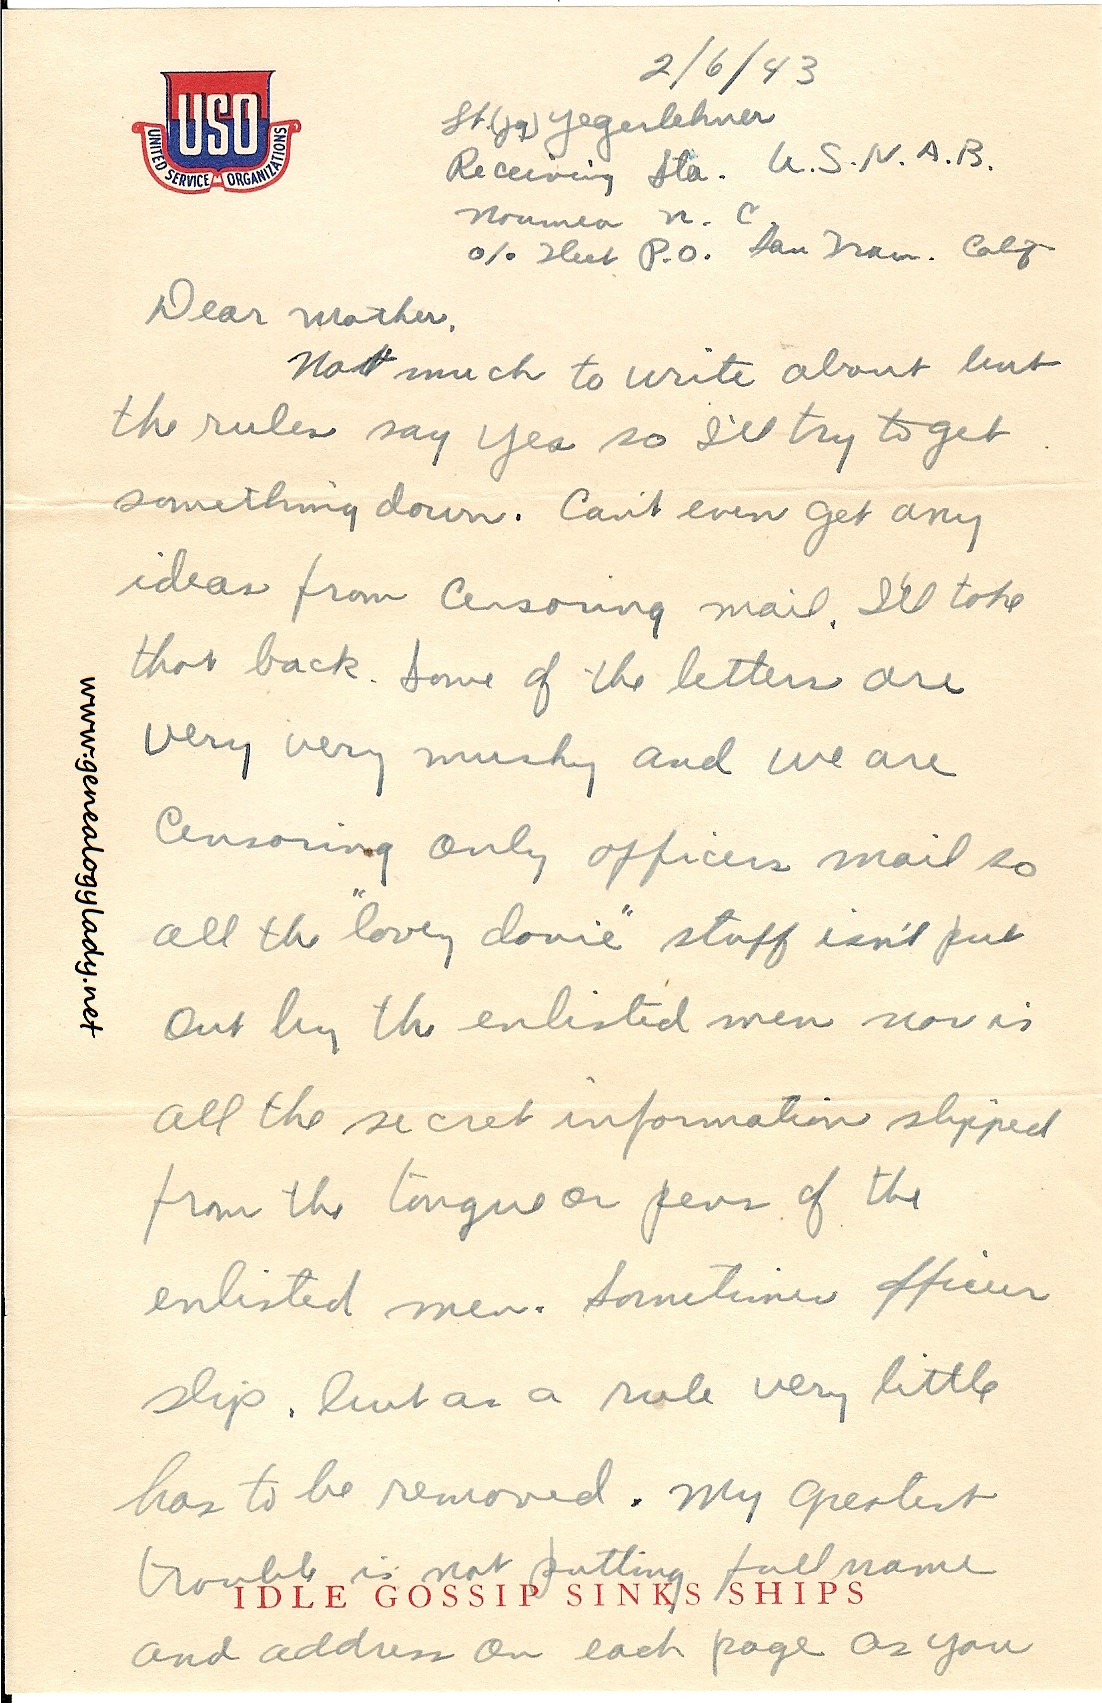 2/6/43
USO
UNITED SERVICE ORGANIZATIONS
Lt.(jg) Yegerlehner
Receiving Sta. U.S.N.A.B.
Noumea N. C.
c/o Fleet P.O. San Fran. Calif
Dear Mother,
Not much to write about but
the rules say yes so I'll try to get
something down. Can't even get any
ideas from censoring mail. I'll take
that back. Some of the letters are
very very mushy and we are
censoring only officers mail so
all the "lovey dovie" stuff isn't put
out by the enlisted men nor is
all the secret information slipped
from the tongue or pens of the
enlisted men. Sometimes officers
slip, but as a rule very little
has to be removed. My greatest
trouble is not putting full name
IDLE GOSSIP SINKS SHIPS
and address on each page as you
www.genealogylady.net